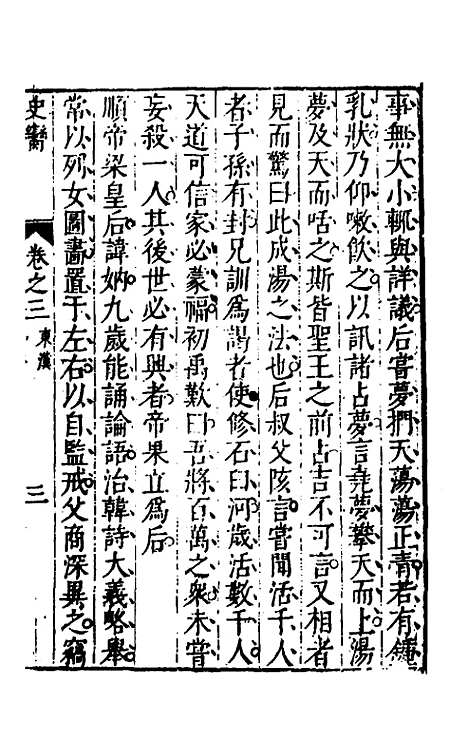 事無大小輒與詳議后嘗夢捫天蕩蕩正青若有鍾
乳狀乃仰嗽飲之以訊諸占夢言堯夢攀天而上湯
夢及天而咶之斯皆聖王之前占吉不可言又相者
見而驚曰此成湯之法也后叔父陔言嘗聞活千人
者子孫有封兄訓爲謁者使修石臼河歲活數千人
天道可信家必蒙福初禹歎曰吾將百萬之衆未嘗
妄殺一人其後世必有興者帝果立爲后
順帝梁皇后諱妠九歲能誦論語治韓詩大義略舉
常以列女圖畫置于左右以自監戒父商深異之竊
史臠
卷之三
東漢
三